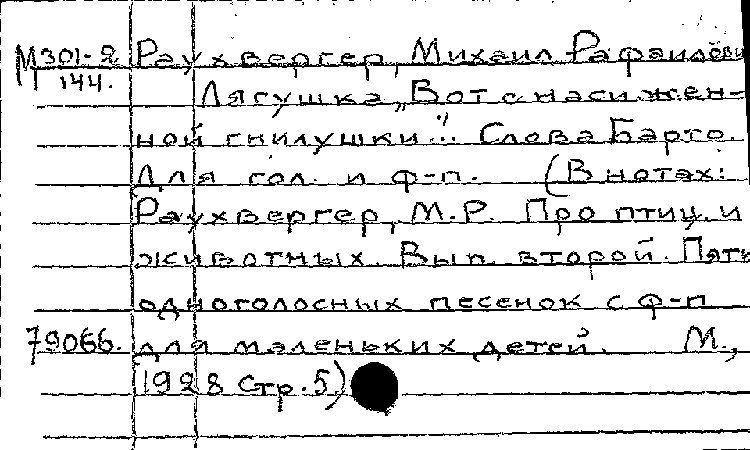 М301-2 Раухвергер, Михаил Рафаилови
144.
Лягушка „Вот с насижен-
ной гнилушки..." Слова Барто.
Для гол. и ф-п. (В нотах:
Раухвергер, М.Р. Про птиц и
животных. Вып. второй. Пять
одноголосных песенок с ф-п
79066. для маленьких детей. М.,
1928 Стр. 5)